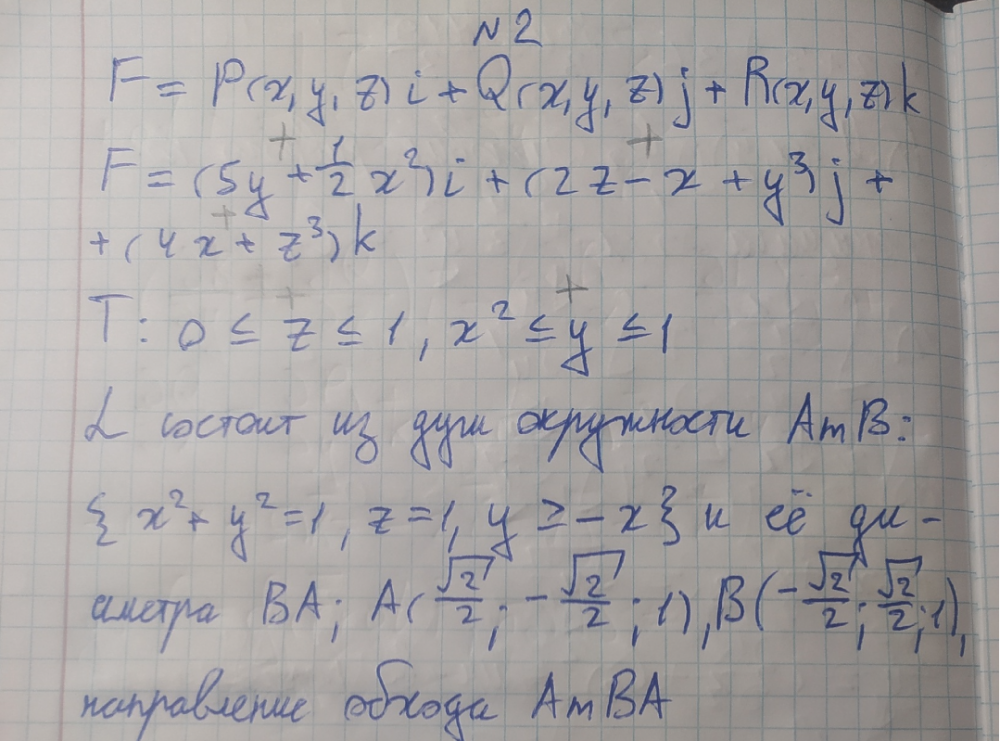 N2
F = P(x, y, z)i + Q(x, y, z)j + R(x, y, z)k
F = (5y + 1/2 x²)i + (2z - x + y³)j +
+ (4x + z³)k
T: 0 ≤ z ≤ 1, x² ≤ y ≤ 1
L состоит из дуги окружности AmB:
{x² + y² = 1, z = 1, y ≥ -x} и её ди-
аметра BA; A(√2/2; -√2/2; 1), B(-√2/2; √2/2; 1),
направление обхода AmBA